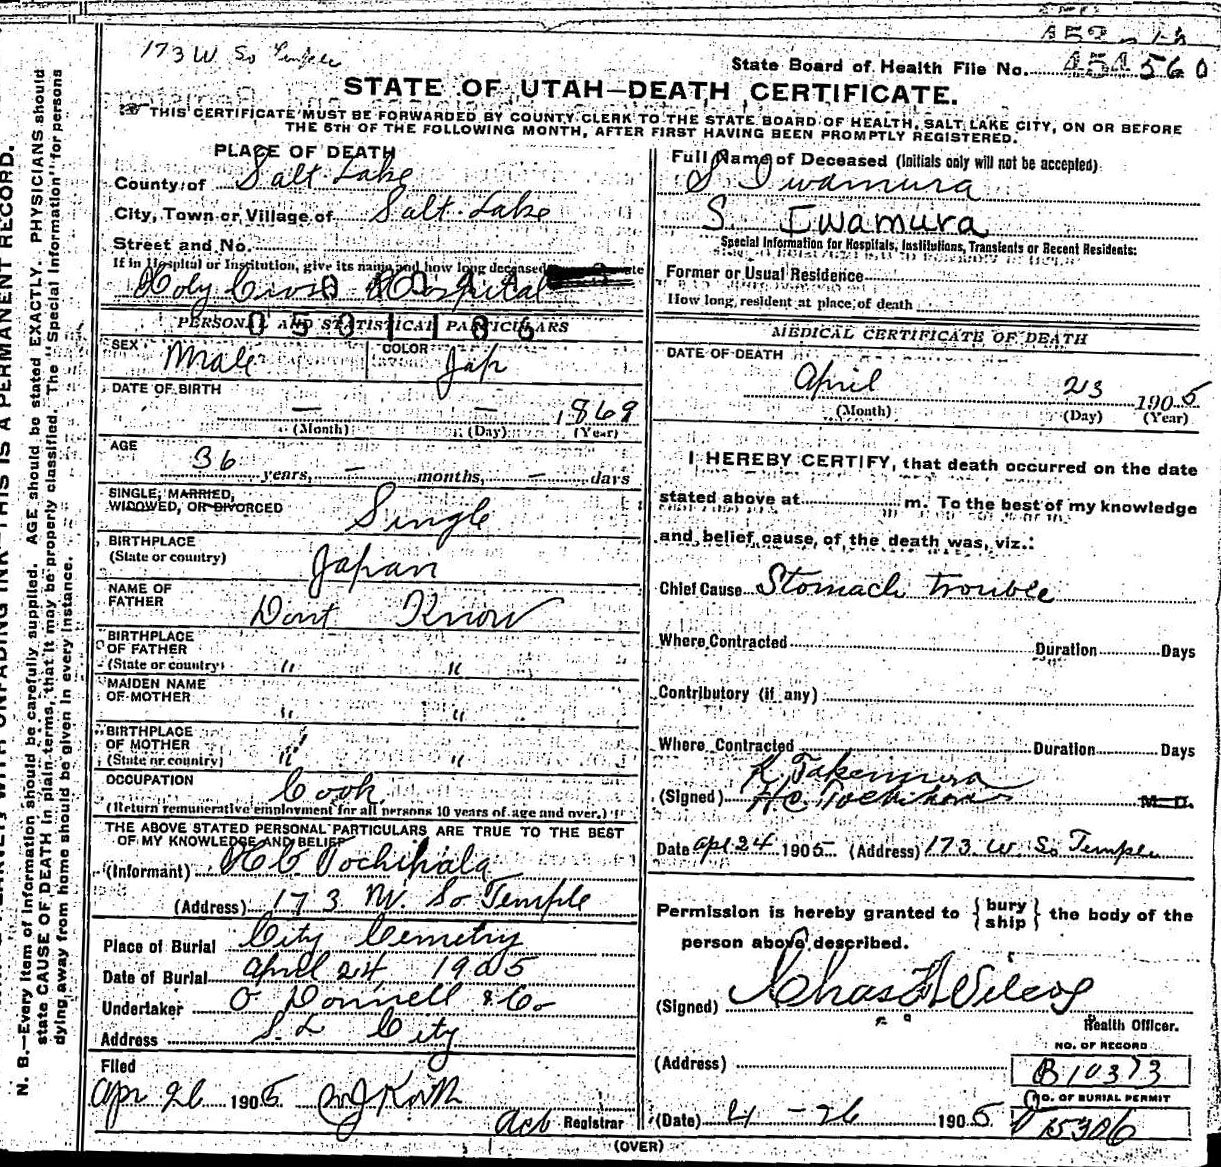 173 W So Temple
State Board of Health File No. 560
STATE OF UTAH—DEATH CERTIFICATE.
THIS CERTIFICATE MUST BE FORWARDED BY COUNTY CLERK TO THE STATE BOARD OF HEALTH, SALT LAKE CITY, ON OR BEFORE
THE 5TH OF THE FOLLOWING MONTH, AFTER FIRST HAVING BEEN PROMPTLY REGISTERED.
PLACE OF DEATH
County of Salt Lake
City, Town or Village of Salt Lake
Street and No.
If in Hospital or Institution, give its name and how long deceased
Holy Cross Hospital
PERSONAL AND STATISTICAL PARTICULARS
SEX Male COLOR Jap
DATE OF BIRTH
— — 1869
(Month) (Day) (Year)
AGE
36 years, — months, — days
SINGLE, MARRIED,
WIDOWED, OR DIVORCED Single
BIRTHPLACE
(State or country) Japan
NAME OF
FATHER Dont Know
BIRTHPLACE
OF FATHER
(State or country) " "
MAIDEN NAME
OF MOTHER " "
BIRTHPLACE
OF MOTHER
(State or country) " "
OCCUPATION Cook
(Return remunerative employment for all persons 10 years of age and over.)
THE ABOVE STATED PERSONAL PARTICULARS ARE TRUE TO THE BEST
OF MY KNOWLEDGE AND BELIEF
(Informant)
(Address) 173 W. So Temple
Place of Burial City Cemetry
Date of Burial April 24 1905
Undertaker O Donnell & Co
Address S. L City
Filed
Apr 26 1905
Registrar
Full Name of Deceased (Initials only will not be accepted)
S Iwamura
S. Iwamura
Special Information for Hospitals, Institutions, Transients or Recent Residents:
Former or Usual Residence
How long resident at place of death
MEDICAL CERTIFICATE OF DEATH
DATE OF DEATH
April 23 1905
(Month) (Day) (Year)
I HEREBY CERTIFY, that death occurred on the date
stated above at m. To the best of my knowledge
and belief cause, of the death was, viz.:
Chief Cause Stomach trouble
Where Contracted Duration Days
Contributory (if any)
Where Contracted Duration Days
K Takemura
(Signed) M. D.
Date Apl 24 1905 (Address) 173 W. So Temple
Permission is hereby granted to { bury
ship } the body of the
person above described.
(Signed) Chas
Health Officer.
NO. OF RECORD
(Address) B10373
NO. OF BURIAL PERMIT
(Date) 4 - 26 1905 15306
(OVER)
N. B.—Every item of information should be carefully supplied. AGE should be stated EXACTLY. PHYSICIANS should
state CAUSE OF DEATH in plain terms, that it may be properly classified. The "Special Information" for persons
dying away from home should be given in every instance.
WITH UNFADING INK—THIS IS A PERMANENT RECORD.